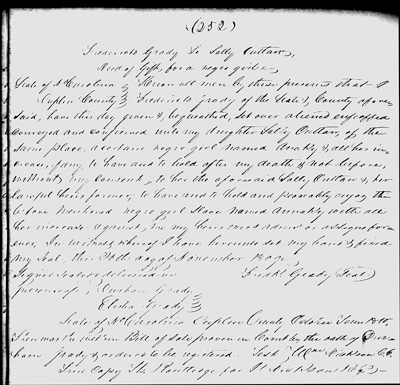 (252)
Frederick Grady To Sally Outlaw,
Deed of Gift, for a negro girl &c
State of N Carolina } Know all men by these presents that I
Duplin County } Frederick Grady of the State & County afore
said, have this day given & bequeathed, set over aliened enfeoffed
conveyed and confirmed unto my daughter Sally Outlaw, of the
same place, a certain negro girl named Annaky & all her in
crease, if any to have and to hold after my death & not before,
without my consent, to her the aforesaid Sally Outlaw &, her
lawful heirs forever, to have and to hold and peaceably enjoy the
before mentioned negro girl Slave named Annaky with all
her increase against, me my heirs exors admrs or assigns for
ever, In witness whereof I have hereunto set my hand & fixed
my Seal, this 28th day of November
Signed Sealed & delivered in Fredk Grady Seal
presence of } Durham Grady
Elisha Grady }
State of No Carolina Duplin County October Term
Then was the within Bill of Sale proven in Court by the oath of Dur
ham Grady & ordered to be registered. Test
True Copy